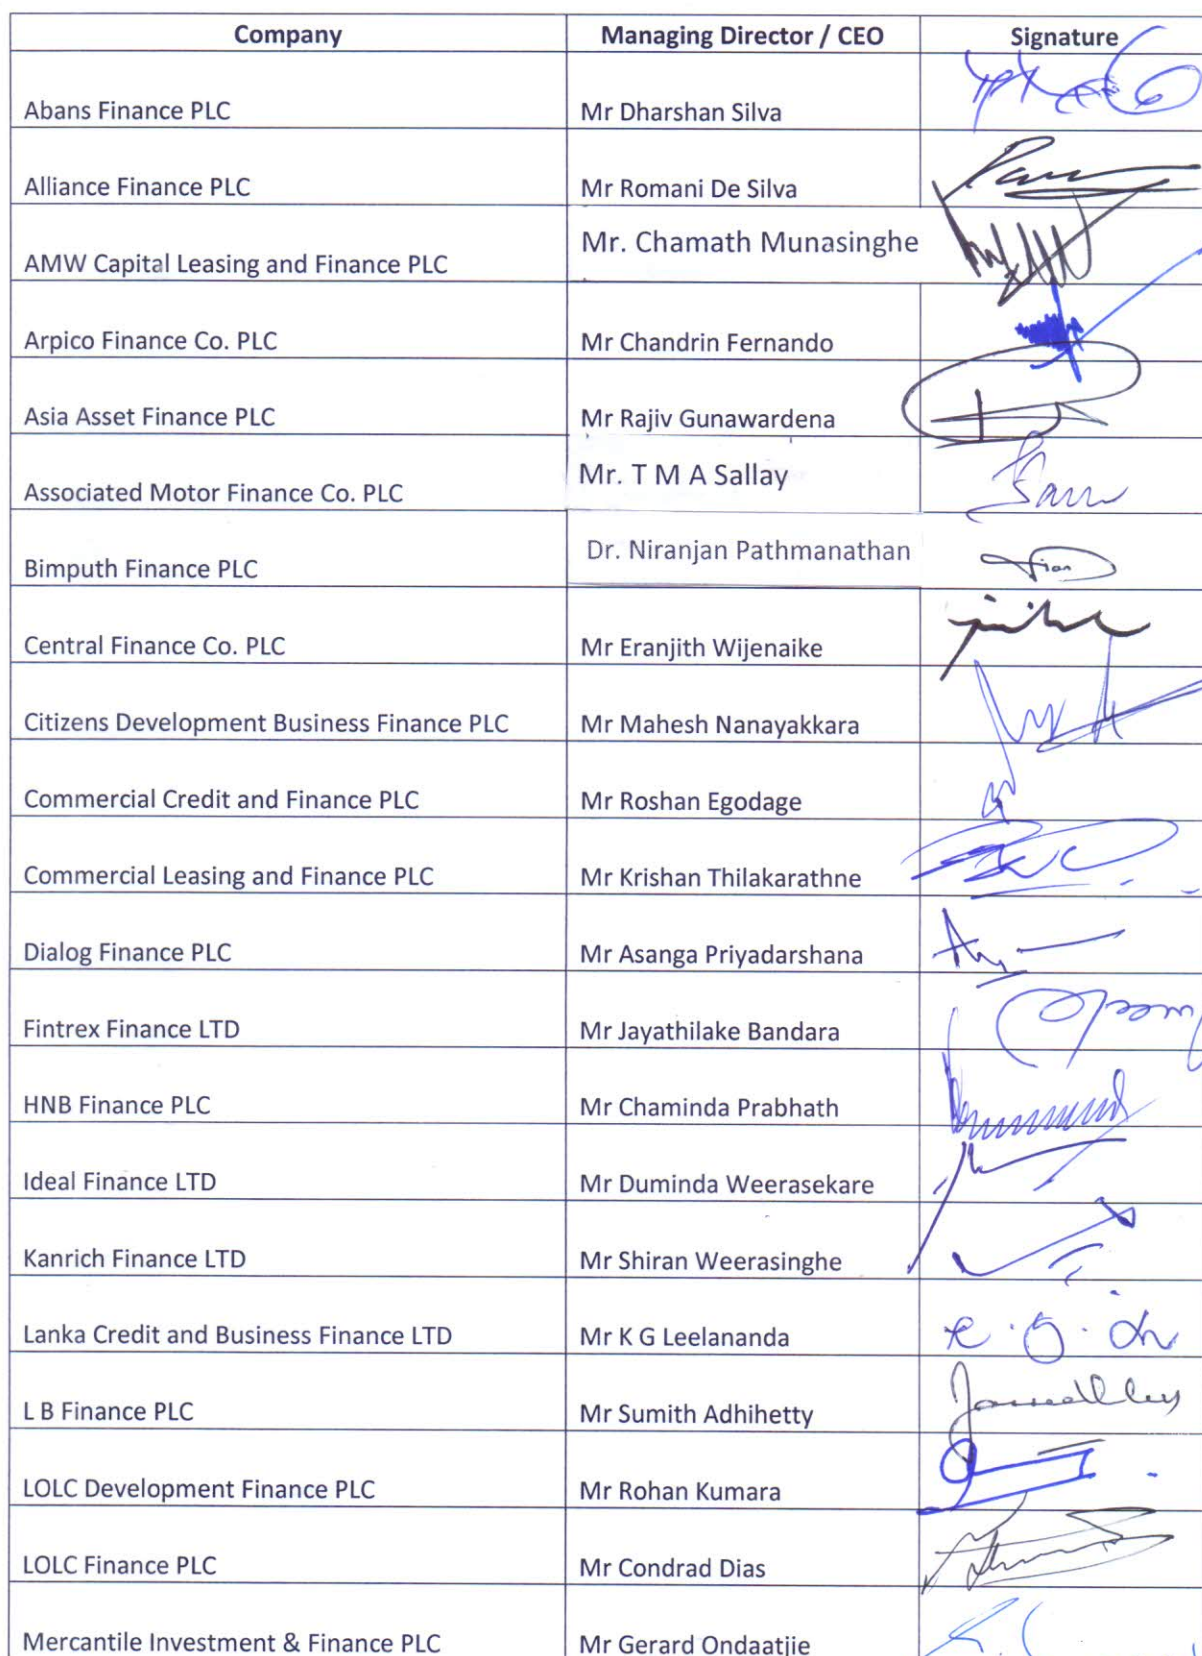 Company Managing Director / CEO Signature
Abans Finance PLC Mr Dharshan Silva
Alliance Finance PLC Mr Romani De Silva
AMW Capital Leasing and Finance PLC Mr. Chamath Munasinghe
Arpico Finance Co. PLC Mr Chandrin Fernando
Asia Asset Finance PLC Mr Rajiv Gunawardena
Associated Motor Finance Co. PLC Mr. T M A Sallay
Bimputh Finance PLC Dr. Niranjan Pathmanathan
Central Finance Co. PLC Mr Eranjith Wijenaike
Citizens Development Business Finance PLC Mr Mahesh Nanayakkara
Commercial Credit and Finance PLC Mr Roshan Egodage
Commercial Leasing and Finance PLC Mr Krishan Thilakarathne
Dialog Finance PLC Mr Asanga Priyadarshana
Fintrex Finance LTD Mr Jayathilake Bandara
HNB Finance PLC Mr Chaminda Prabhath
Ideal Finance LTD Mr Duminda Weerasekare
Kanrich Finance LTD Mr Shiran Weerasinghe
Lanka Credit and Business Finance LTD Mr K G Leelananda
L B Finance PLC Mr Sumith Adhihetty
LOLC Development Finance PLC Mr Rohan Kumara
LOLC Finance PLC Mr Condrad Dias
Mercantile Investment & Finance PLC Mr Gerard Ondaatjie